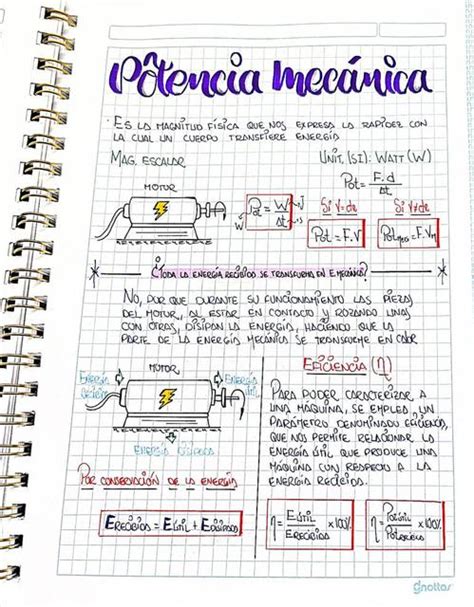 Potencia mecánica
· Es la magnitud física que nos expresa la rapidez con
la cual un cuerpo transfiere energía
Mag. Escalar
Unit. (SI): Watt (W)
Motor
Pot = W/Δt
W
J
s
Pot = F.d/Δt
Si V=cte
Si V≠cte
Pot = F.V
Potmed = F.Vm
¿Toda la energía recibida se transforma en E mecánica?
No, por que durante su funcionamiento las piezas
del motor, al estar en contacto y rozando unas
con otras, disipan la energía, haciendo que la
parte de la energía mecánica se transforme en calor
Motor
Energía
recibida
Energía
útil
Energía disipada
Por conservación de la energía
Erecibida = Eútil + Edisipada
Eficiencia (η)
Para poder caracterizar a
una máquina, se emplea un
parámetro denominado eficiencia,
que nos permite relacionar la
energía útil que produce una
máquina con respecto a la
energía recibida.
η = Eútil/Erecibida x100%
η = Potútil/Potrecibida x100%
Gnottas